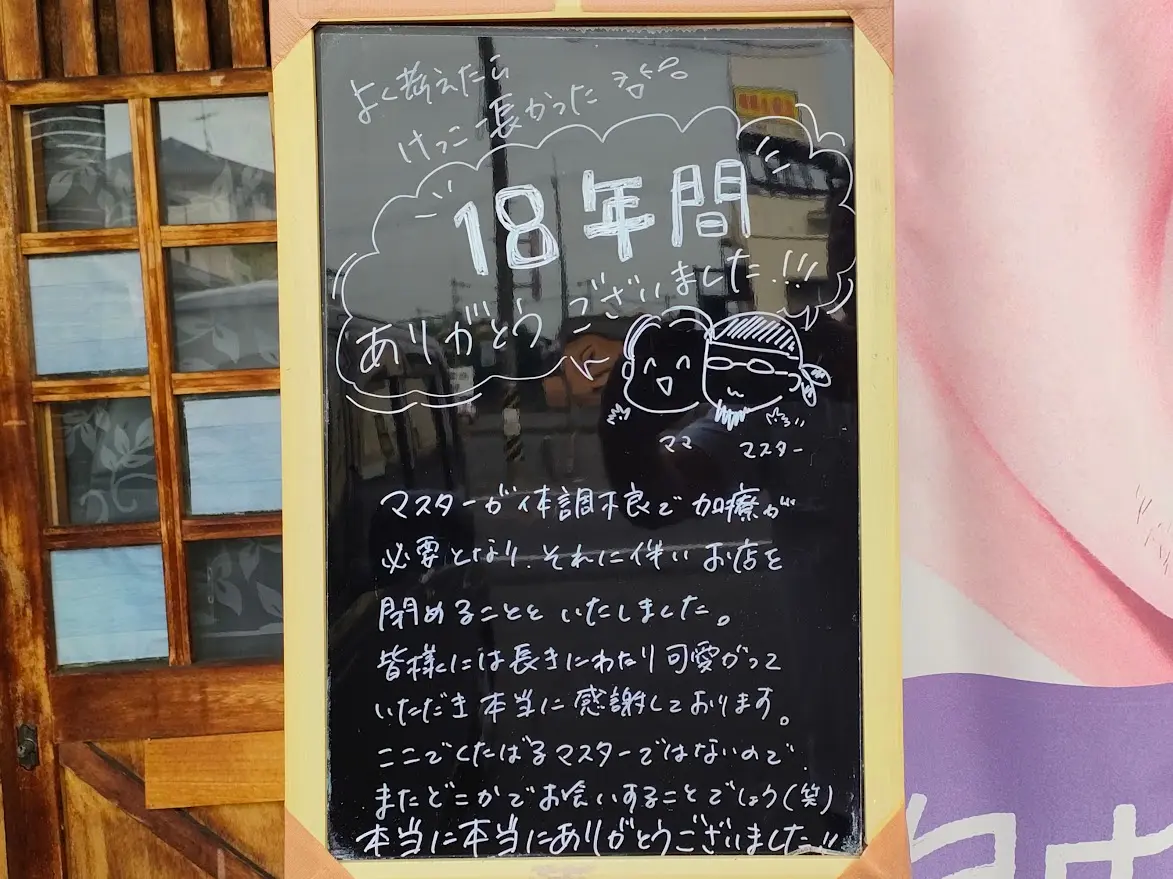 よく考えたら
けっこー長かった
18年間
ありがとうございました!!!
ママ
マスター
マスターが体調不良で加療が
必要となり、それに伴いお店を
閉めることといたしました。
皆様には長きにわたり可愛がって
いただき本当に感謝しております。
ここでくたばるマスターではないので
またどこかでお会いすることでしょう(笑)
本当に本当にありがとうございました!!